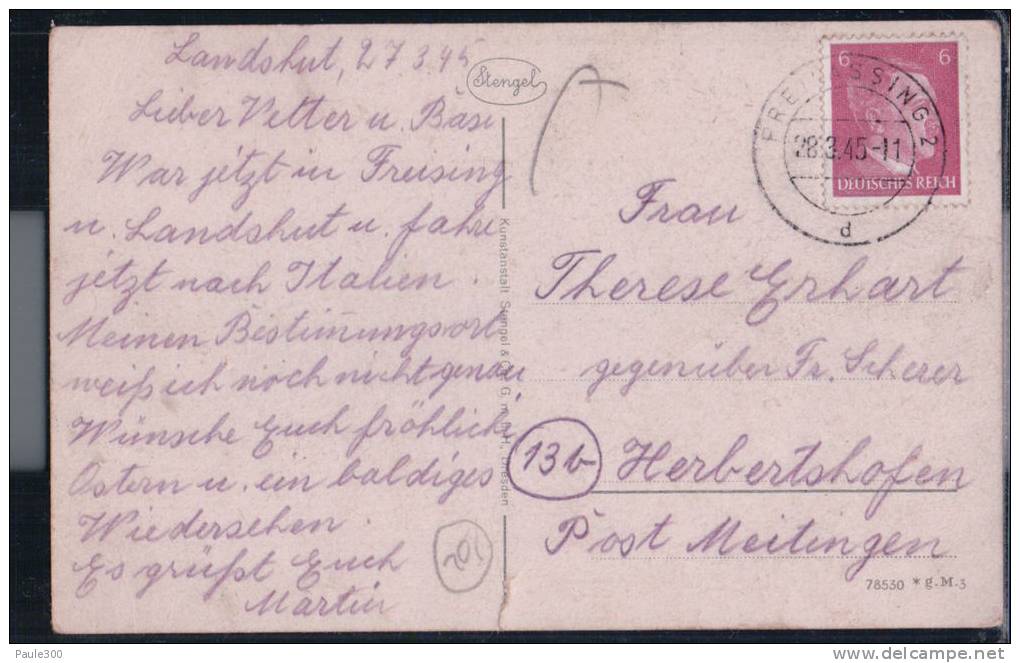 Landshut, 27.3.45
Stengel
Lieber Vetter u. Base
War jetzt in Freising
u. Landshut u. fahre
jetzt nach Italien.
Meinen Bestimmungsort
weiß ich noch nicht genau,
Wünsche Euch fröhliche
Ostern u. ein baldiges
Wiedersehen.
Es grüßt Euch
Martin
Kunstanstalt Stengel & Co. G.m.b.H., Dresden
6 6
DEUTSCHES REICH
FREILASSING 2
28.3.45-11
d
Frau
Therese Erhart
gegenüber Fr. Scherer
13b Herbertshofen
Post Meitingen
78530 * g.M.3
Paule300
delcampe.net